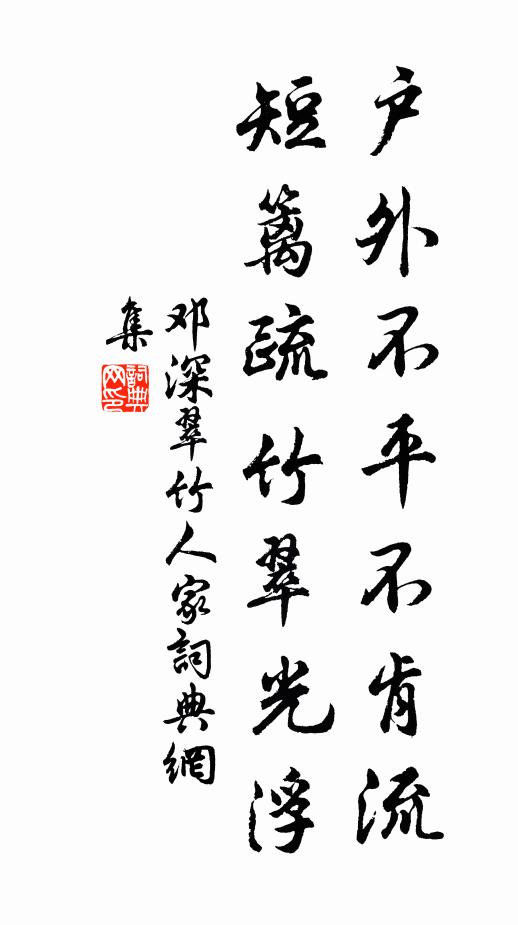 户外不平不肯流
短篱疏竹翠光浮
邓深翠竹人家詞典網
集
詞典网印